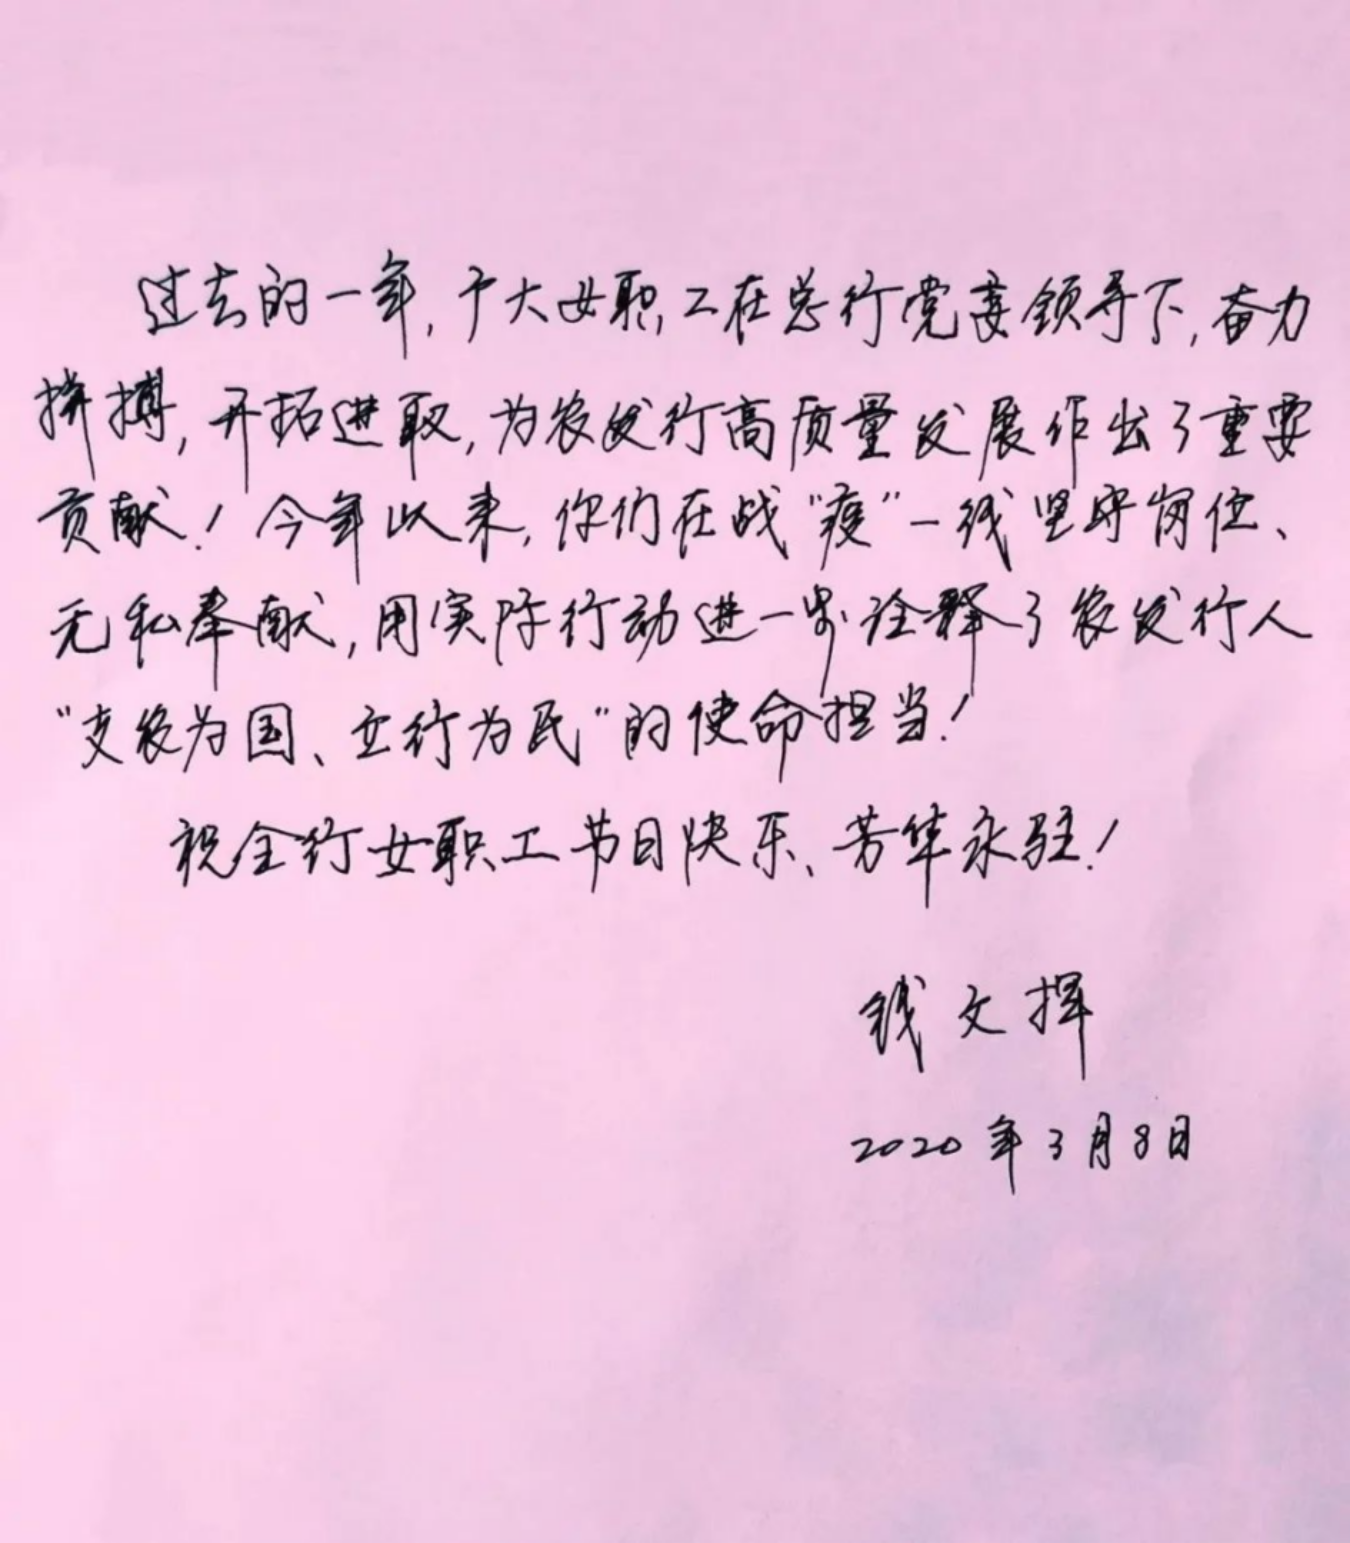 过去的一年,广大女职工在总行党委领导下,奋力
拼搏,开拓进取,为农发行高质量发展作出了重要
贡献!今年以来,你们在战“疫”一线坚守岗位、
无私奉献,用实际行动进一步诠释了农发行人
“支农为国、立行为民”的使命担当!
祝全行女职工节日快乐、芳华永驻!
钱文挥
2020年3月8日